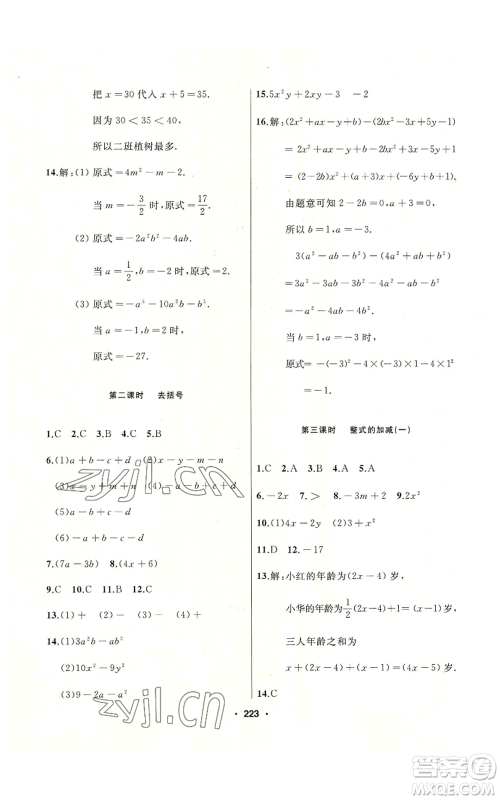 把 x=30 代入 x+5=35.
因为 30<35<40,
所以二班植树最多.
14.解:(1) 原式=4m²-m-2.
当 m=-3/2 时,原式=17/2.
(2) 原式=-2a²b²-4ab.
当 a=1/2,b=2 时,原式=-6.
(3) 原式=-a³-10a²b-b³.
当 a=1,b=2 时,
原式=-27.
第二课时 去括号
1.C 2.A 3.B 4.C 5.B
6.(1)a+b-c+d (2)x-y-m-n
(3)x-y+m+n (4)a-b-c+d
(5)-a+b-c
(6)-a+b+c-d
7.(7a-3b) 8.(4x+6)
9.C 10.C 11.B 12.C
13.(1)+ - (2)- (4)- -
14.(1)3a²b-ab²
(2)10x²-9y²
(3)9-2a-a²
15.5x²y+2xy-3 -2
16.解:(2x²+ax-y+b)-(2bx²-3x+5y-1)
=2x²+ax-y+b-2bx²+3x-5y+1
=(2-2b)x²+(a+3)x-6y+b+1,
由题意可知 2-2b=0,a+3=0,
所以 b=1,a=-3.
3(a²-ab-b²)-(4a²+ab+b²)
=3a²-3ab-3b²-4a²-ab-b²
=-a²-4ab-4b²,
当 a=-3,b=1 时,
原式=-(-3)²-4×(-3)×1-4×1²
=-1.
第三课时 整式的加减(一)
1.C 2.A 3.D 4.B 5.A
6.-2x 7.> 8.-3m+2 9.2x²
10.(1)4x-2y (2)3+x²
11.D 12.-17
13.解:小红的年龄为(2x-4)岁,
小华的年龄为[1/2(2x-4)+1]岁,
三人年龄之和为
x+(2x-4)+[1/2(2x-4)+1]
14.C
· 223 ·
zyjl.cn
zyjl.cn
答案圈
MXQE.COM